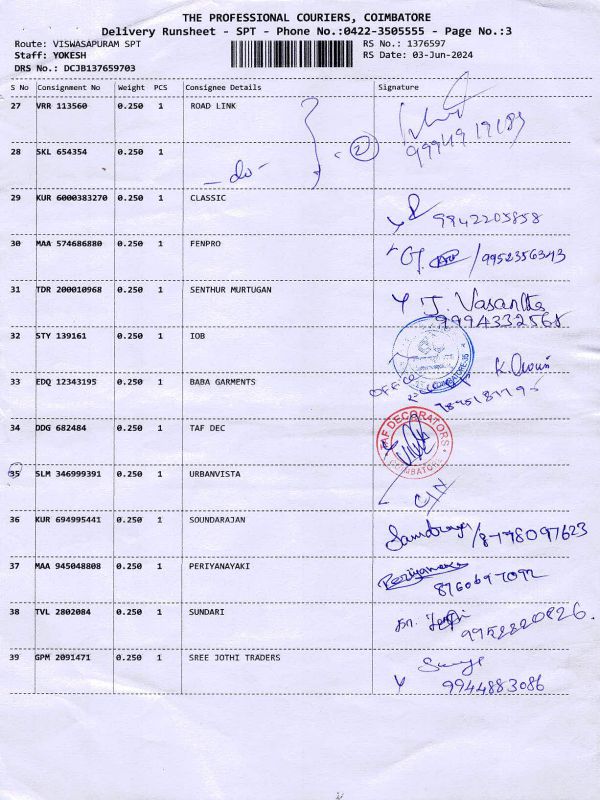 THE PROFESSIONAL COURIERS, COIMBATORE
Delivery Runsheet - SPT - Phone No.:0422-3505555 - Page No.:3
Route: VISWASAPURAM SPT RS No.: 1376597
Staff: YOKESH RS Date: 03-Jun-2024
DRS No.: DCJB137659703
S No Consignment No Weight PCS Consignee Details Signature
27 VRR 113560 0.250 1 ROAD LINK
28 SKL 654354 0.250 1 - do - 2
29 KUR 6000383270 0.250 1 CLASSIC
9942205858
30 MAA 574686880 0.250 1 FENPRO
31 TDR 200010968 0.250 1 SENTHUR MURTUGAN J. Vasantha
9994332568
32 STY 139161 0.250 1 IOB
33 EDQ 12343195 0.250 1 BABA GARMENTS
34 DDG 682484 0.250 1 TAF DEC
TAF DECORATORS
COIMBATORE
35 SLM 346999391 0.250 1 URBANVISTA
36 KUR 694995441 0.250 1 SOUNDARAJAN
37 MAA 945048808 0.250 1 PERIYANAYAKI
8760697092
38 TVL 2802084 0.250 1 SUNDARI
9952820826
39 GPM 2091471 0.250 1 SREE JOTHI TRADERS
9944883086